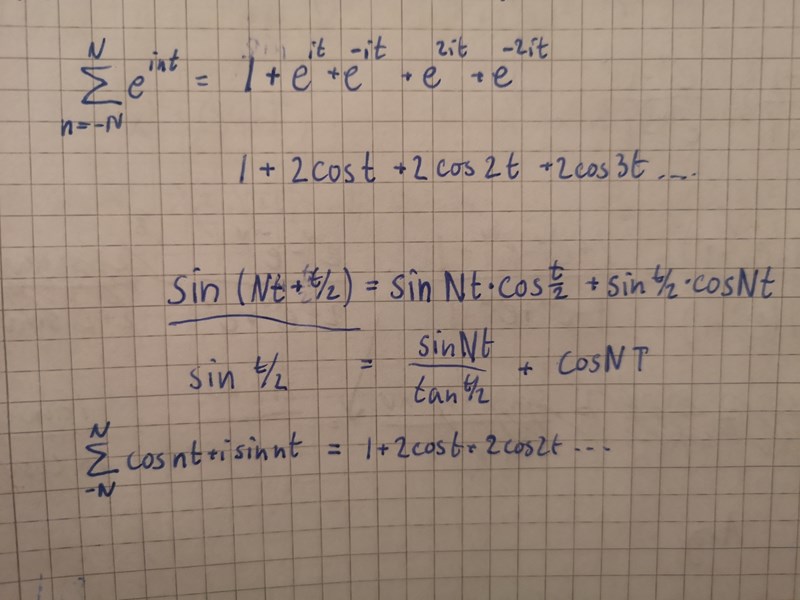 ∑_{n=-N}^{N} e^{int} = 1 + e^{it} + e^{-it} + e^{2it} + e^{-2it}
1 + 2cost + 2cos2t + 2cos3t ....
sin (Nt + t/2) = sin Nt · cos t/2 + sin t/2 · cosNt
sin t/2 = sinNt / tan t/2 + cosNT
∑_{-N}^{N} cosnt + i sinnt = 1 + 2cost + 2cos2t ...